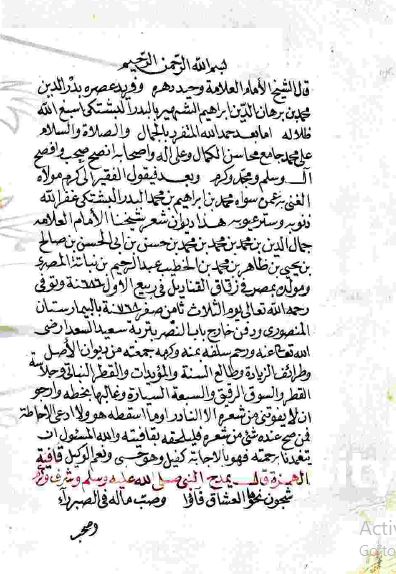 بسم الله الرحمن الرحيم
قال الشيخ الأمام العلامة وحيد دهره وفريد عصره بدر الدين
محمد بن برهان الدين ابراهيم الشهير بالبدر البشتكى اسبغ الله
ظلاله اما بعد حمد الله المنفرد بالجمال والصلاة والسلام
على محمد جامع محاسن الكمال وعلى اله واصحابه انصح صحب وافصح
ال وسلم ومجد وكرم وبعد فيقول الفقير الى كرم مولاه
الغنى به عمن سواه محمد بن ابراهيم بن محمد البدر البشتكى غفر الله
ذنوبه وستر عيوبه هذا ديوان شعر شيخنا الأمام العلامه
جمال الدين بن محمد بن محمد بن محمد بن حسن بن ابى الحسن بن صالح
بن يحيى بن طاهر بن محمد بن الخطيب عبد الرحيم بن نباتة المصرى
ومولده بمصر فى زقاق القناديل فى ربيع الاول سنة وتوفى
رحمه الله تعالى يوم الثلاث ثامن صفر سنة ٧٦٨ بالبيمارستان
المنصورى ودفن خارج باب النصر بتربة سعيد السعدا رضى
الله تعالى عنه ورحم سلفه بمنه وكرمه جمعته من ديوان الأصل
وطرائف الزيادة وطالع السنة والمؤيدات والقطر النباتى وجلاسة
القطر والسوق الرقيق والسبعة السيارة وغالبها بخطه وارجو
ان لا يفوتنى من شعره الا النادر او ما اسقطه هو ولا ادعى الاحاطة
فمن صح عنده شئ من شعره فليلحقه بقافيته والله المسئول ان
يتغمدنا برحمته فهو بالاجابة كفيل وهو حسبى ونعم الوكيل قافية
الهمزة قال يمدح النبى صلى الله عليه وسلم وشرف وكرم
شجون نحوها العشاق فاؤا وصب ماله فى الصبر راء
وصحب
Activ
Go to